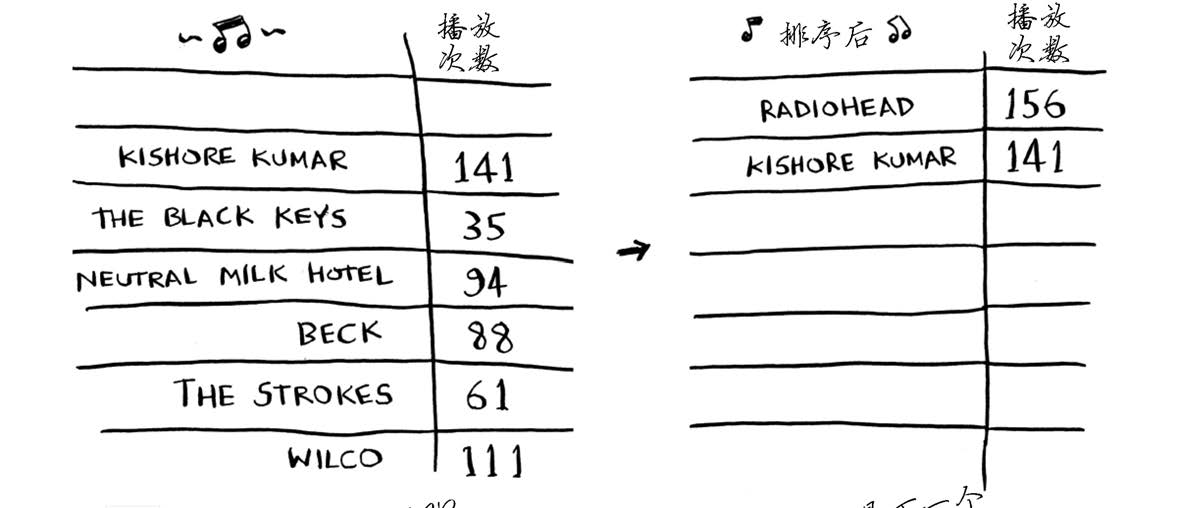 播放
次数
KISHORE KUMAR 141
THE BLACK KEYS 35
NEUTRAL MILK HOTEL 94
BECK 88
THE STROKES 61
WILCO 111
排序后
播放
次数
RADIOHEAD 156
KISHORE KUMAR 141